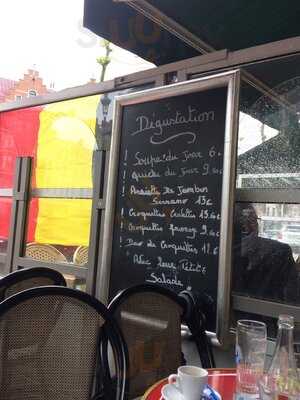 Dégustation
! Soupe du Jour 6.
! Quiche du Jour 9.
! Assiette de Jambon
Serrano 13€
! Croquettes Crevettes 15.
! Croquettes fromage 9.
! Duo de Croquettes 11.€
"Avec leur Petite
Salade